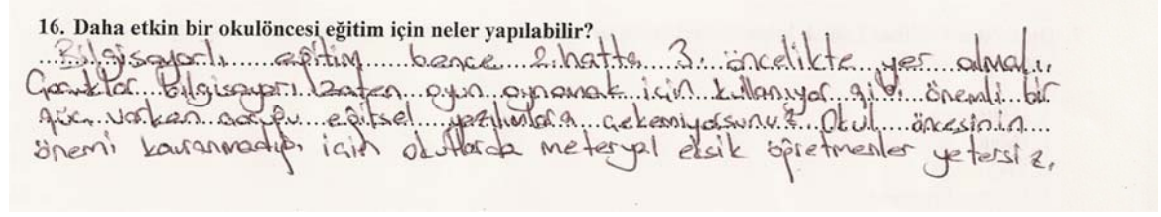 16. Daha etkin bir okulöncesi eğitim için neler yapılabilir?
Bilgisayarlı eğitim bence 2. hatta 3. öncelikte yer almalı.
Çocuklar bilgisayarı zaten oyun oynamak için kullanıyor gibi önemli bir
güç varken çocuğu eğitsel yazılımlara çekemiyorsunuz. Okul öncesinin
önemi kavranmadığı için okullarda meteryal eksik öğretmenler yetersiz.